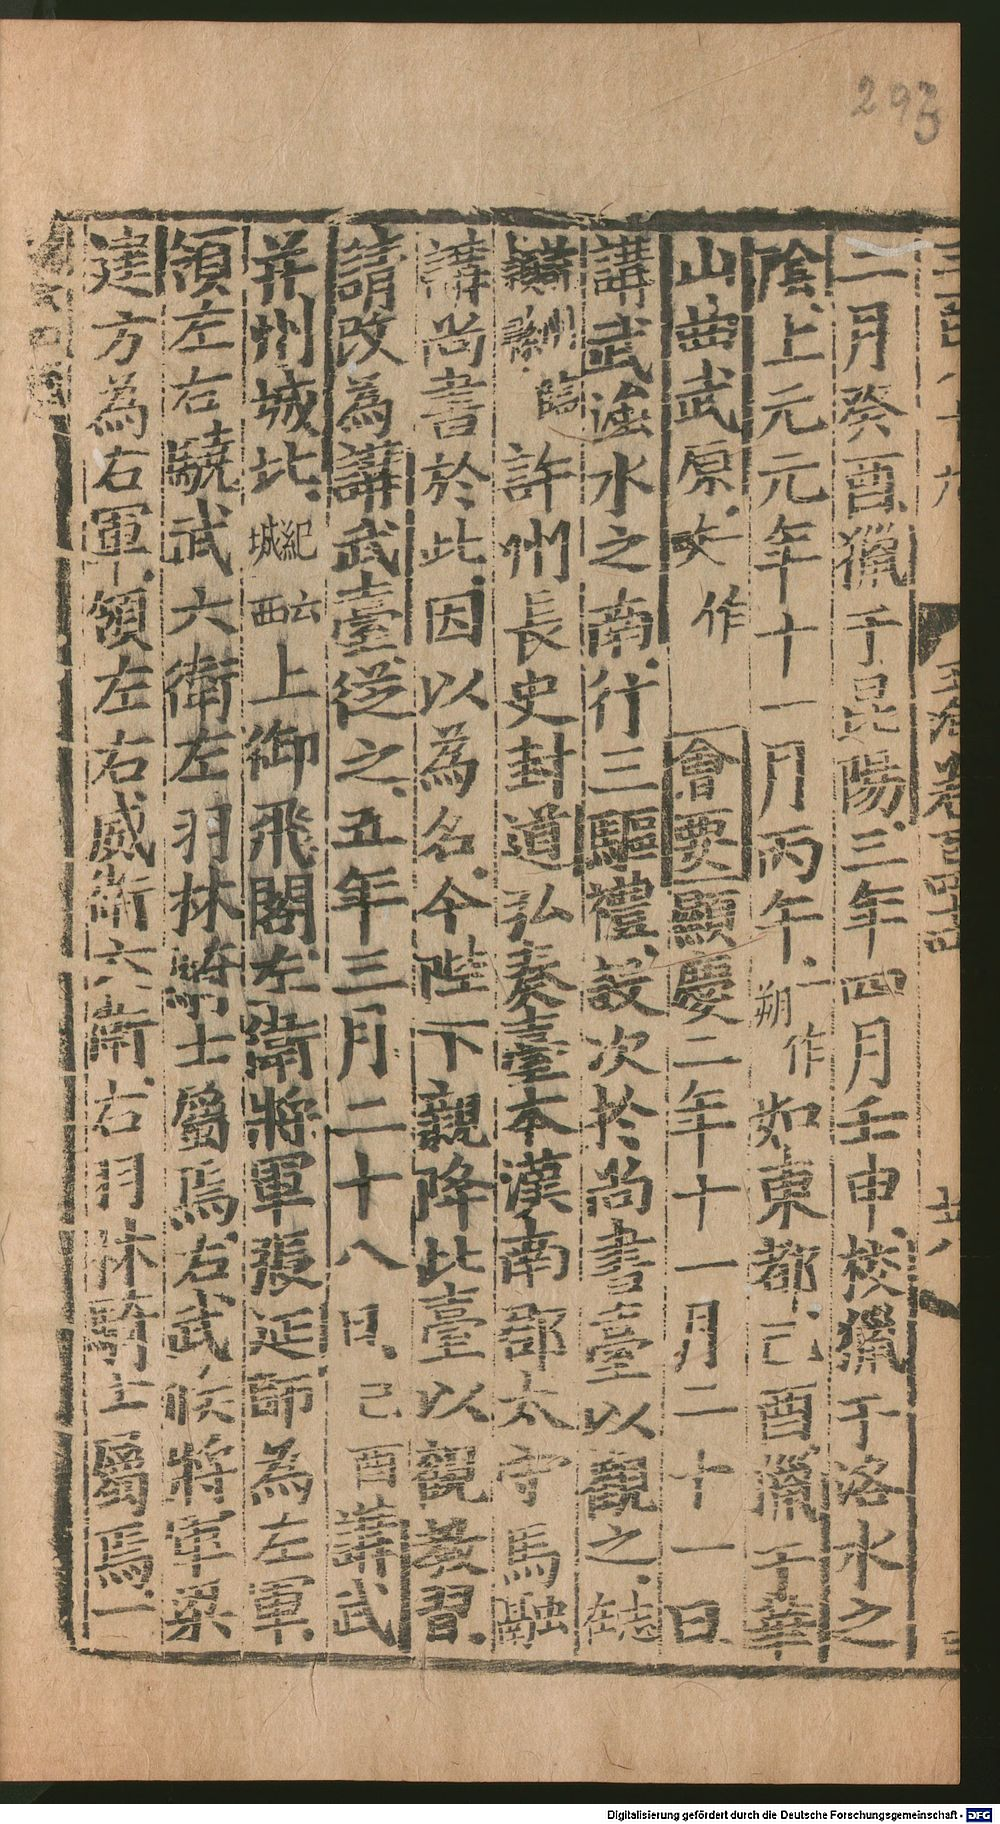 293
二月癸酉獵于昆陽三年四月壬申校獵于洛水之
陰上元元年十一月丙午一作朔如東都己酉獵于華
山曲武原一作 會要顯慶二年十一月二十一日
講武滍水之南行三驅禮設次於尚書臺以觀之志在
臨 許州長史封道弘奏臺本漢南郡太守馬融
講尚書於此因以為名今陛下親降此臺以觀教習
請改為講武臺從之五年三月二十八日己酉講武
并州城北紀云城西上御飛閣左衛將軍張延師為左軍
領左右驍武六衛左羽林騎士屬焉右武候將軍梁
建方為右軍領左右威衛六衛右羽林騎士屬焉一
Digitalisierung gefördert durch die Deutsche Forschungsgemeinschaft - DFG